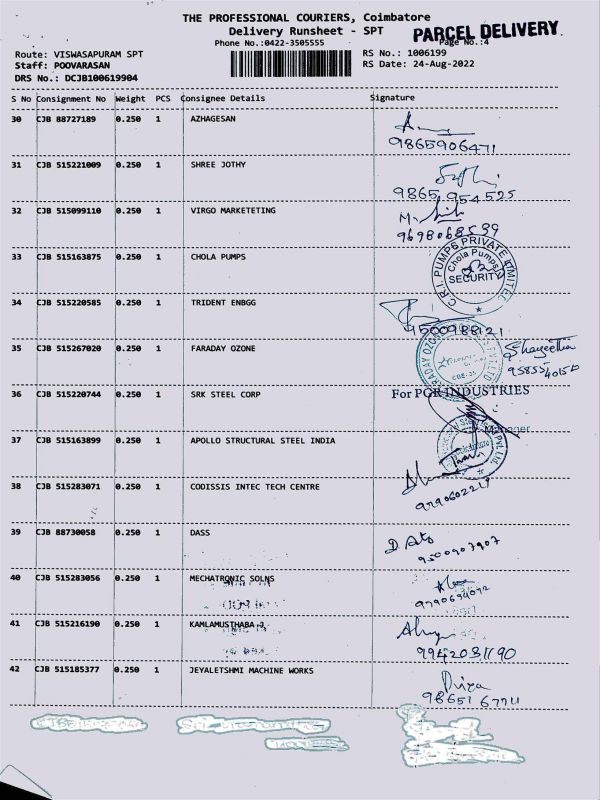 THE PROFESSIONAL COURIERS, Coimbatore
Delivery Runsheet - SPT
PARCEL DELIVERY
Phone No.:0422-3505555
Page No.:4
Route: VISWASAPURAM SPT
RS No.: 1006199
Staff: POOVARASAN
RS Date: 24-Aug-2022
DRS No.: DCJB100619904
S No Consignment No Weight PCS Consignee Details Signature
30 CJB 88727189 0.250 1 AZHAGESAN
9865906471
31 CJB 515221009 0.250 1 SHREE JOTHY
9865 954 525
32 CJB 515099110 0.250 1 VIRGO MARKETETING
9698068539
33 CJB 515163875 0.250 1 CHOLA PUMPS
C.R.I. PUMPS PRIVATE LIMITED
Chola Pumps
SECURITY
34 CJB 515220585 0.250 1 TRIDENT ENBGG
9500988121
35 CJB 515267020 0.250 1 FARADAY OZONE
36 CJB 515220744 0.250 1 SRK STEEL CORP
For PGR INDUSTRIES
Manager
37 CJB 515163899 0.250 1 APOLLO STRUCTURAL STEEL INDIA
38 CJB 515283071 0.250 1 CODISSIS INTEC TECH CENTRE
39 CJB 88730058 0.250 1 DASS
9500907907
40 CJB 515283056 0.250 1 MECHATRONIC SOLNS
9790694092
41 CJB 515216190 0.250 1 KAMLAMUSTHABA J
9942031190
42 CJB 515185377 0.250 1 JEYALETSHMI MACHINE WORKS